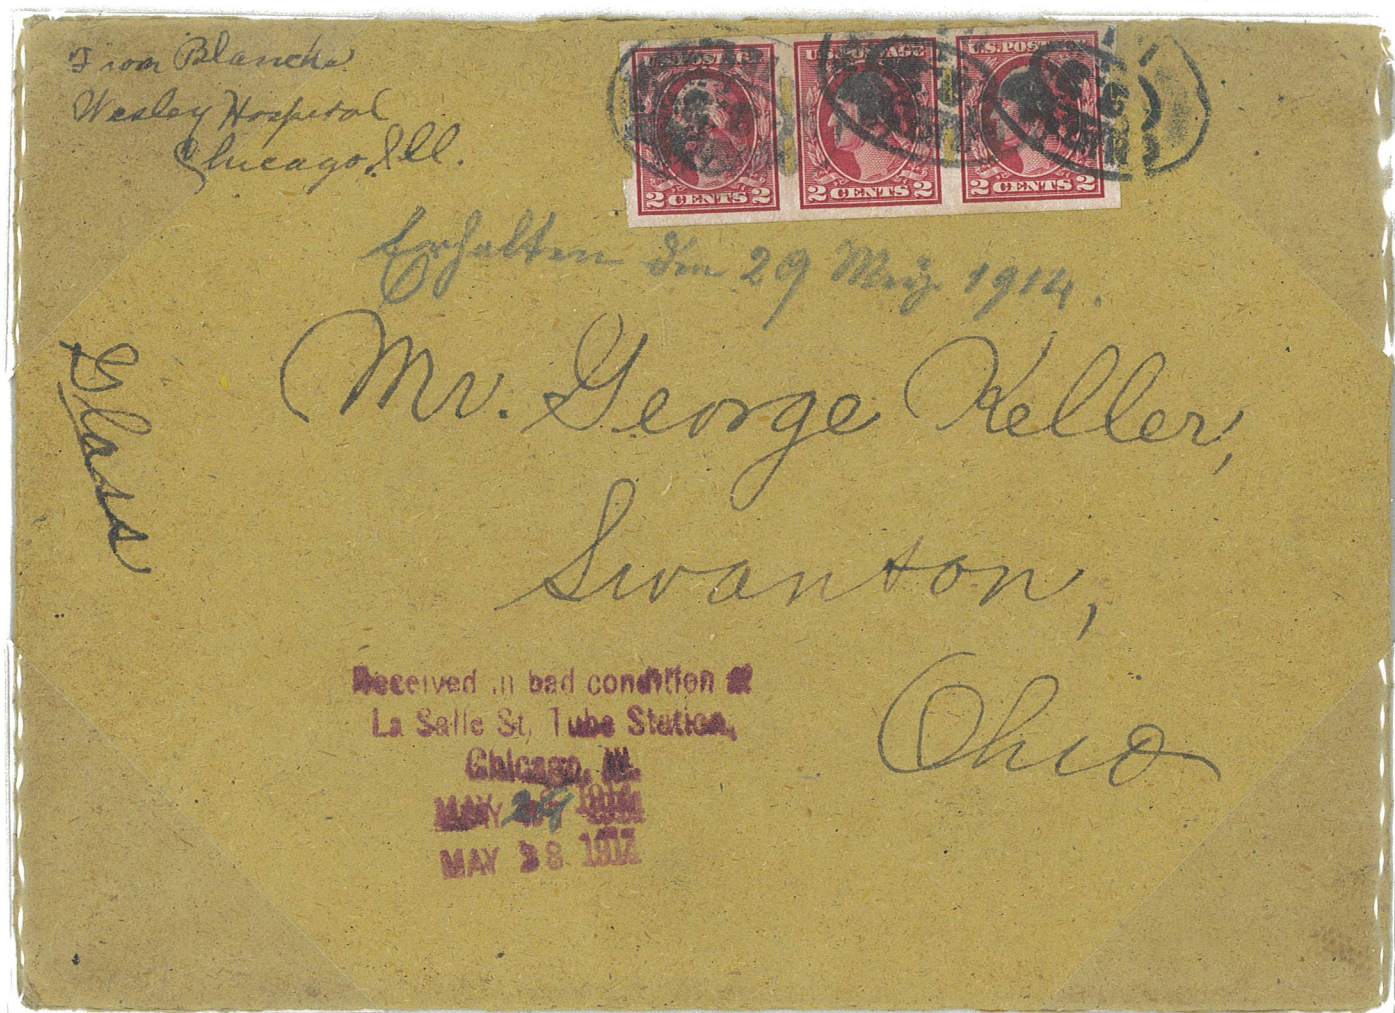 From Blanche
Wesley Hospital
Chicago, Ill.
U.S. POSTAGE
2 CENTS 2
U.S. POSTAGE
2 CENTS 2
U.S. POSTAGE
2 CENTS 2
Erhalten den 29 Maiz 1914.
Glass
Mr. George Keller,
Swanton,
Ohio
Received in bad condition at
La Salle St. Tube Station,
Chicago, Ill.
MAY 29 1914
MAY 28 1914